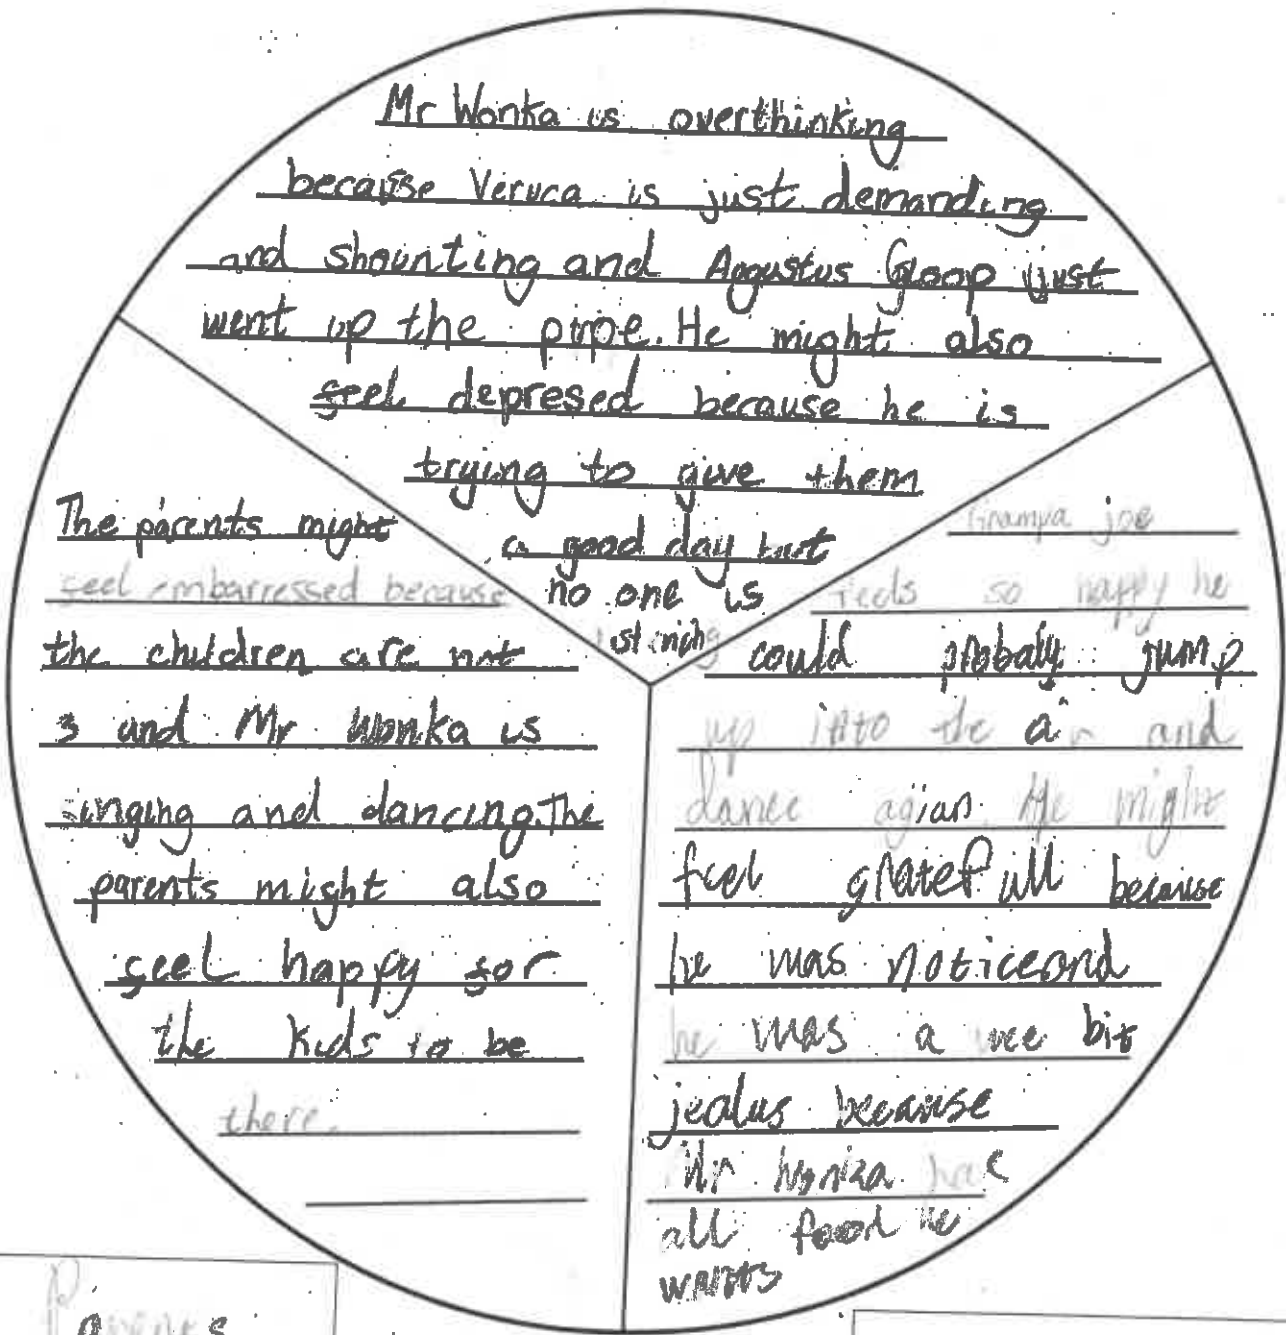 Mr Wonka is overthinking
because Veruca is just demanding
and shounting and Agustus Gloop just
went up the pipe. He might also
feel depresed because he is
trying to give them
a good day but
no one is
The parents might
feel embarressed because
the children are not
3 and Mr Wonka is
singing and dancing. The
parents might also
feel happy for
the kids to be
there.
Grampa joe
feels so happy he
could probaly jump
up into the air and
dance agian. He might
feel gratefull because
he was notice and
he was a wee bit
jealus because
Mr Wonka has
all food he
wants
Parents